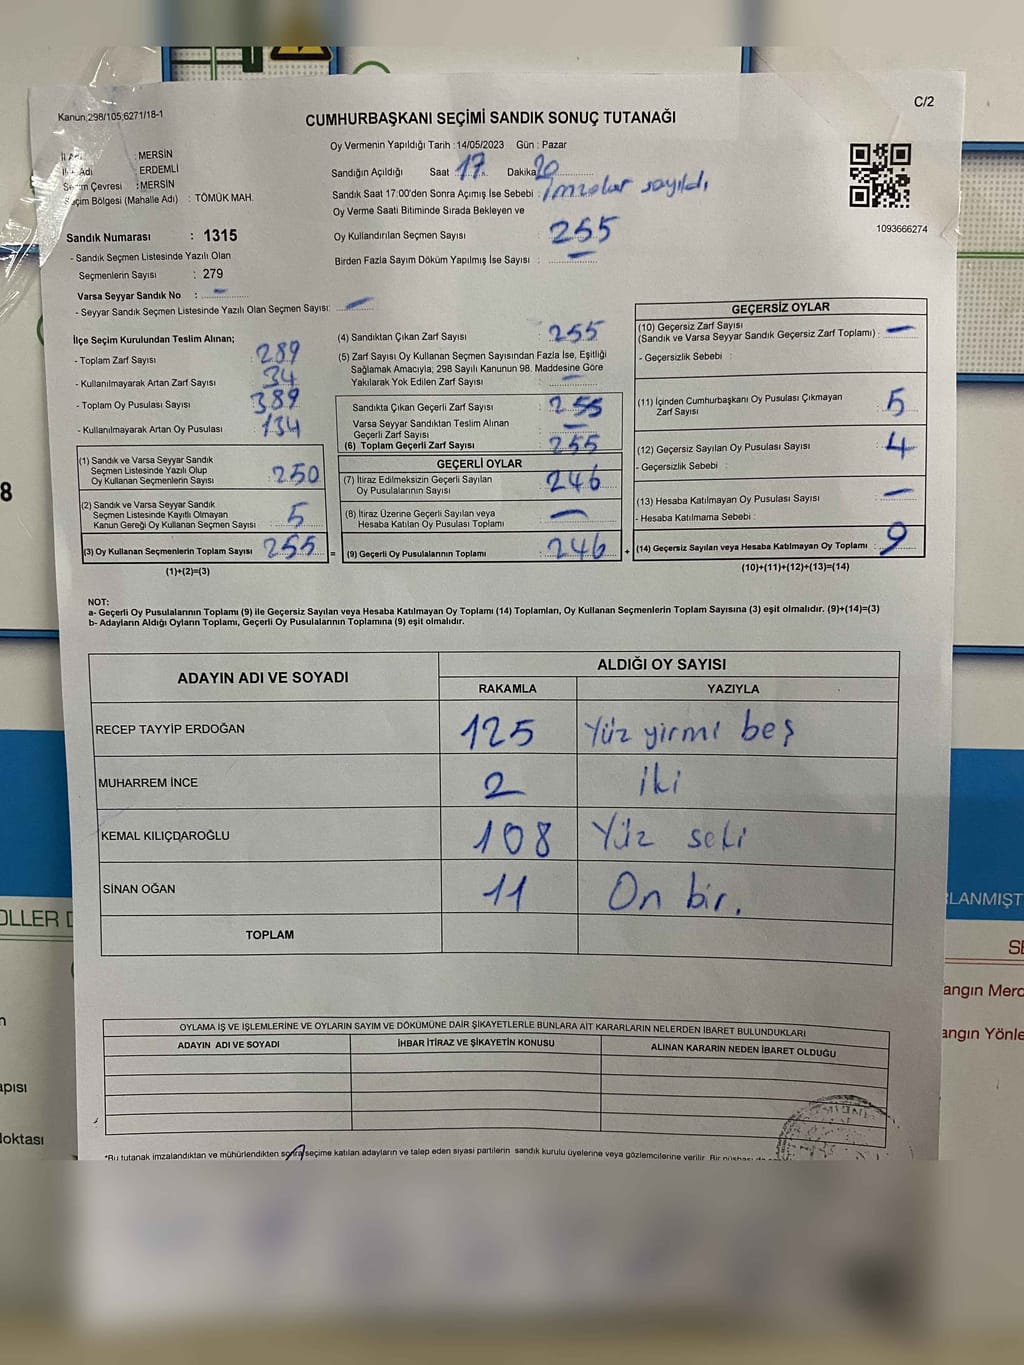 C/2
Kanun 298/105,6271/18-1
CUMHURBAŞKANI SEÇİMİ SANDIK SONUÇ TUTANAĞI
: MERSİN
: ERDEMLİ
Seçim Çevresi : MERSİN
Seçim Bölgesi (Mahalle Adı) : TÖMÜK MAH.
Oy Vermenin Yapıldığı Tarih : 14/05/2023 Gün : Pazar
Sandığın Açıldığı Saat 17 Dakika 20
Sandık Saat 17:00'den Sonra Açımış İse Sebebi : İmzalar sayıldı
Oy Verme Saati Bitiminde Sırada Bekleyen ve
Oy Kullandırılan Seçmen Sayısı 255
Birden Fazla Sayım Döküm Yapılmış İse Sayısı : —
1093666274
Sandık Numarası : 1315
- Sandık Seçmen Listesinde Yazılı Olan
Seçmenlerin Sayısı : 279
Varsa Seyyar Sandık No : —
- Seyyar Sandık Seçmen Listesinde Yazılı Olan Seçmen Sayısı: —
İlçe Seçim Kurulundan Teslim Alınan;
- Toplam Zarf Sayısı 289
- Kullanılmayarak Artan Zarf Sayısı 34
- Toplam Oy Pusulası Sayısı 389
- Kullanılmayarak Artan Oy Pusulası 134
(1) Sandık ve Varsa Seyyar Sandık
Seçmen Listesinde Yazılı Olup
Oy Kullanan Seçmenlerin Sayısı : 250
(2) Sandık ve Varsa Seyyar Sandık
Seçmen Listesinde Kayıtlı Olmayan
Kanun Gereği Oy Kullanan Seçmen Sayısı : 5
(3) Oy Kullanan Seçmenlerin Toplam Sayısı 255 =
(1)+(2)=(3)
(4) Sandıktan Çıkan Zarf Sayısı : 255
(5) Zarf Sayısı Oy Kullanan Seçmen Sayısından Fazla İse, Eşitliği
Sağlamak Amacıyla; 298 Sayılı Kanunun 98. Maddesine Göre
Yakılarak Yok Edilen Zarf Sayısı : —
Sandıkta Çıkan Geçerli Zarf Sayısı : 255
Varsa Seyyar Sandıktan Teslim Alınan
Geçerli Zarf Sayısı : —
(6) Toplam Geçerli Zarf Sayısı : 255
GEÇERLİ OYLAR
(7) İtiraz Edilmeksizin Geçerli Sayılan
Oy Pusulalarının Sayısı : 246
(8) İtiraz Üzerine Geçerli Sayılan veya
Hesaba Katılan Oy Pusulası Toplamı : —
(9) Geçerli Oy Pusulalarının Toplamı : 246 +
GEÇERSİZ OYLAR
(10) Geçersiz Zarf Sayısı
(Sandık ve Varsa Seyyar Sandık Geçersiz Zarf Toplamı) : —
- Geçersizlik Sebebi :
(11) İçinden Cumhurbaşkanı Oy Pusulası Çıkmayan
Zarf Sayısı : 5
(12) Geçersiz Sayılan Oy Pusulası Sayısı : 4
- Geçersizlik Sebebi :
(13) Hesaba Katılmayan Oy Pusulası Sayısı : —
- Hesaba Katılmama Sebebi :
(14) Geçersiz Sayılan veya Hesaba Katılmayan Oy Toplamı : 9
(10)+(11)+(12)+(13)=(14)
NOT:
a- Geçerli Oy Pusulalarının Toplamı (9) ile Geçersiz Sayılan veya Hesaba Katılmayan Oy Toplamı (14) Toplamları, Oy Kullanan Seçmenlerin Toplam Sayısına (3) eşit olmalıdır. (9)+(14)=(3)
b- Adayların Aldığı Oyların Toplamı, Geçerli Oy Pusulalarının Toplamına (9) eşit olmalıdır.
ADAYIN ADI VE SOYADI
ALDIĞI OY SAYISI
RAKAMLA YAZIYLA
RECEP TAYYİP ERDOĞAN 125 Yüz yirmi beş
MUHARREM İNCE 2 iki
KEMAL KILIÇDAROĞLU 108 Yüz seki
SİNAN OĞAN 11 On bir.
TOPLAM
OYLAMA İŞ VE İŞLEMLERİNE VE OYLARIN SAYIM VE DÖKÜMÜNE DAİR ŞİKAYETLERLE BUNLARA AİT KARARLARIN NELERDEN İBARET BULUNDUKLARI
ADAYIN ADI VE SOYADI İHBAR İTİRAZ VE ŞİKAYETİN KONUSU ALINAN KARARIN NEDEN İBARET OLDUĞU
*Bu tutanak imzalandıktan ve mühürlendikten sonra seçime katılan adayların ve talep eden siyasi partilerin sandık kurulu üyelerine veya gözlemcilerine verilir. Bir
8
OLLER D
apısı
loktası
LANMIŞT
SE
angın Merd
angın Yönle